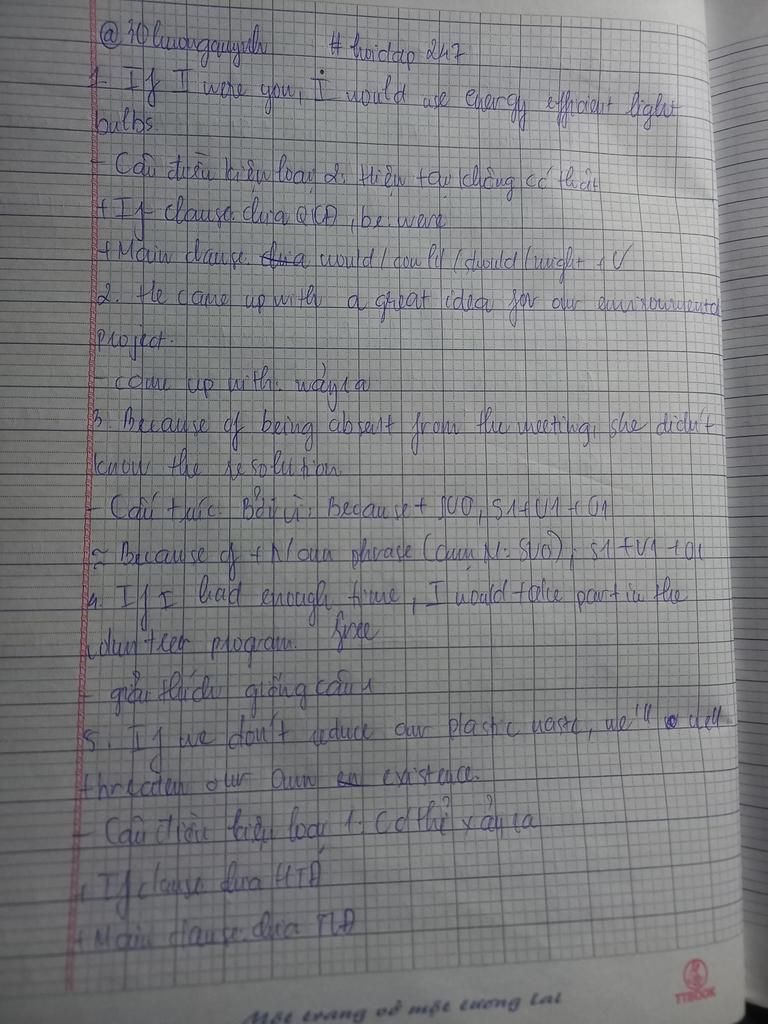 @ 30 luongquynh # hoidap 247
1. If I were you, I would use energy efficient light
bulbs
- Câu điều kiện loại 2: Hiện tại không có thật
+ If clause chia QKĐ, be: were
+ Main clause would / could / should / might + V
2. He came up with a great idea for our environmental
project.
- come up with: nảy ra
3. Because of being absent from the meeting, she didn't
know the resolution
- Cấu trúc Bởi vì: Because + SVO, S1+V1+O1
≈ Because of + N/oun phrase (cụm N: SVO), S1+V1+O1
4. If I had enough time, I would take part in the
volunteer program free
- giải thích giống câu 1
5. If we don't reduce our plastic waste, we'll
threaten our own existence.
- Câu điều kiện loại 1: Có thể xảy ra
+ If clause chia HTĐ
+ Main clause chia TLĐ
Một trang vở một tương lai
TTBOOK